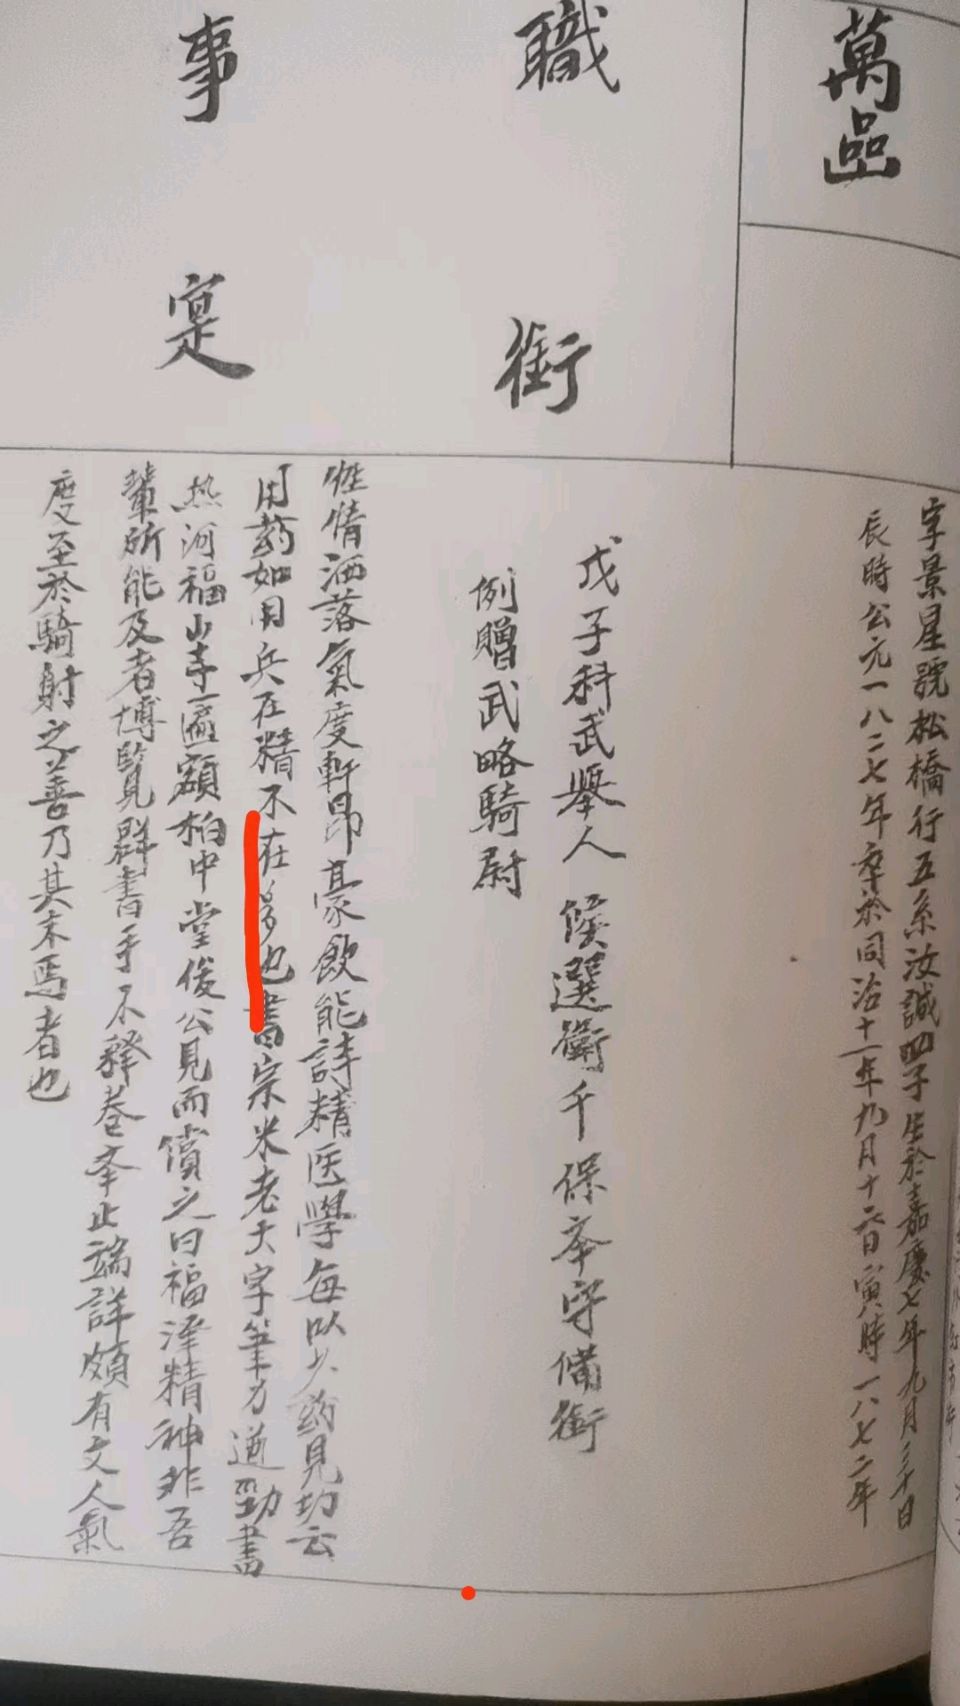 萬區
字景星號松橋行五系汝誠四子生於嘉慶七年九月三十日
辰時公元一八二七年卒於同治十一年九月十六日寅時一八七二年
職銜
戊子科武舉人 候選衛千 保奉守備銜
例贈武略騎尉
事寔
性情洒落氣度軒昂豪飲能詩精医學每以少药見功云
用药如用兵在精不在多也書宗米老大字筆力遒勁書
热河福山寺一匾額柏中堂俊公見而償之曰福泽精神非吾
輩所能及者博覧群書手不釋卷夲止端詳頗有文人氣
度至於騎射之善乃其末焉者也